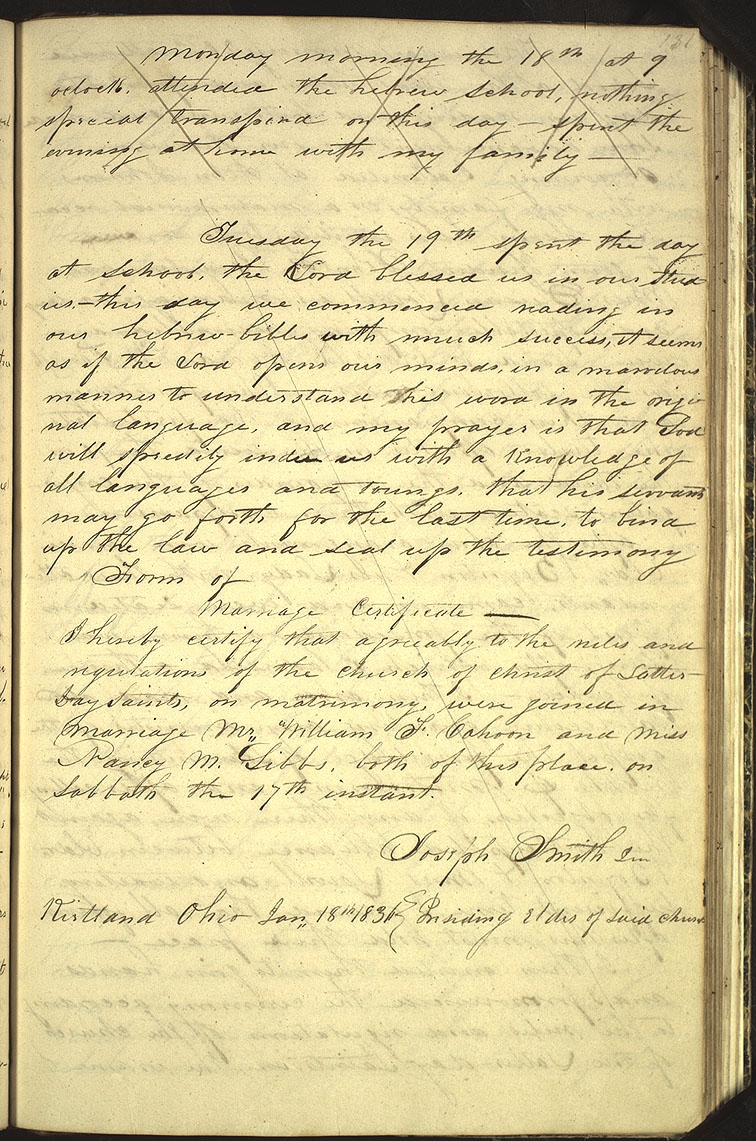 131
Monday morning the 18th at 9
oclock. attended the hebrew school, nothing
special transpired on this day – spent the
evening at home with my family —
Tuesday the 19th spent the day
at school. the Lord blessed us in our stud
ies.– this day we commenced reading in
our hebrew-bibles with much success, it seems
as if the Lord opens our minds, in a marvelous
manner to understand his word in the origi
nal language, and my prayer is that God
will speedily indu us with a knowledge of
all languages and toungs. that his servants
may go forth for the last time, to bind
up the law and seal up the testimony
Form of
Marriage Certificate —
I hereby certify that agreeably to the rules and
regulations of the church of christ of Latter–
Day Saints, on matrimony, were joined in
marriage Mr. William F. Cahoon and Miss
Nancy M. Gibbs, both of this place. on
Sabbath the 17th instant.
Joseph Smith Jun
Kirtland Ohio Jan, 18th 1836 { Presiding Elder of said church